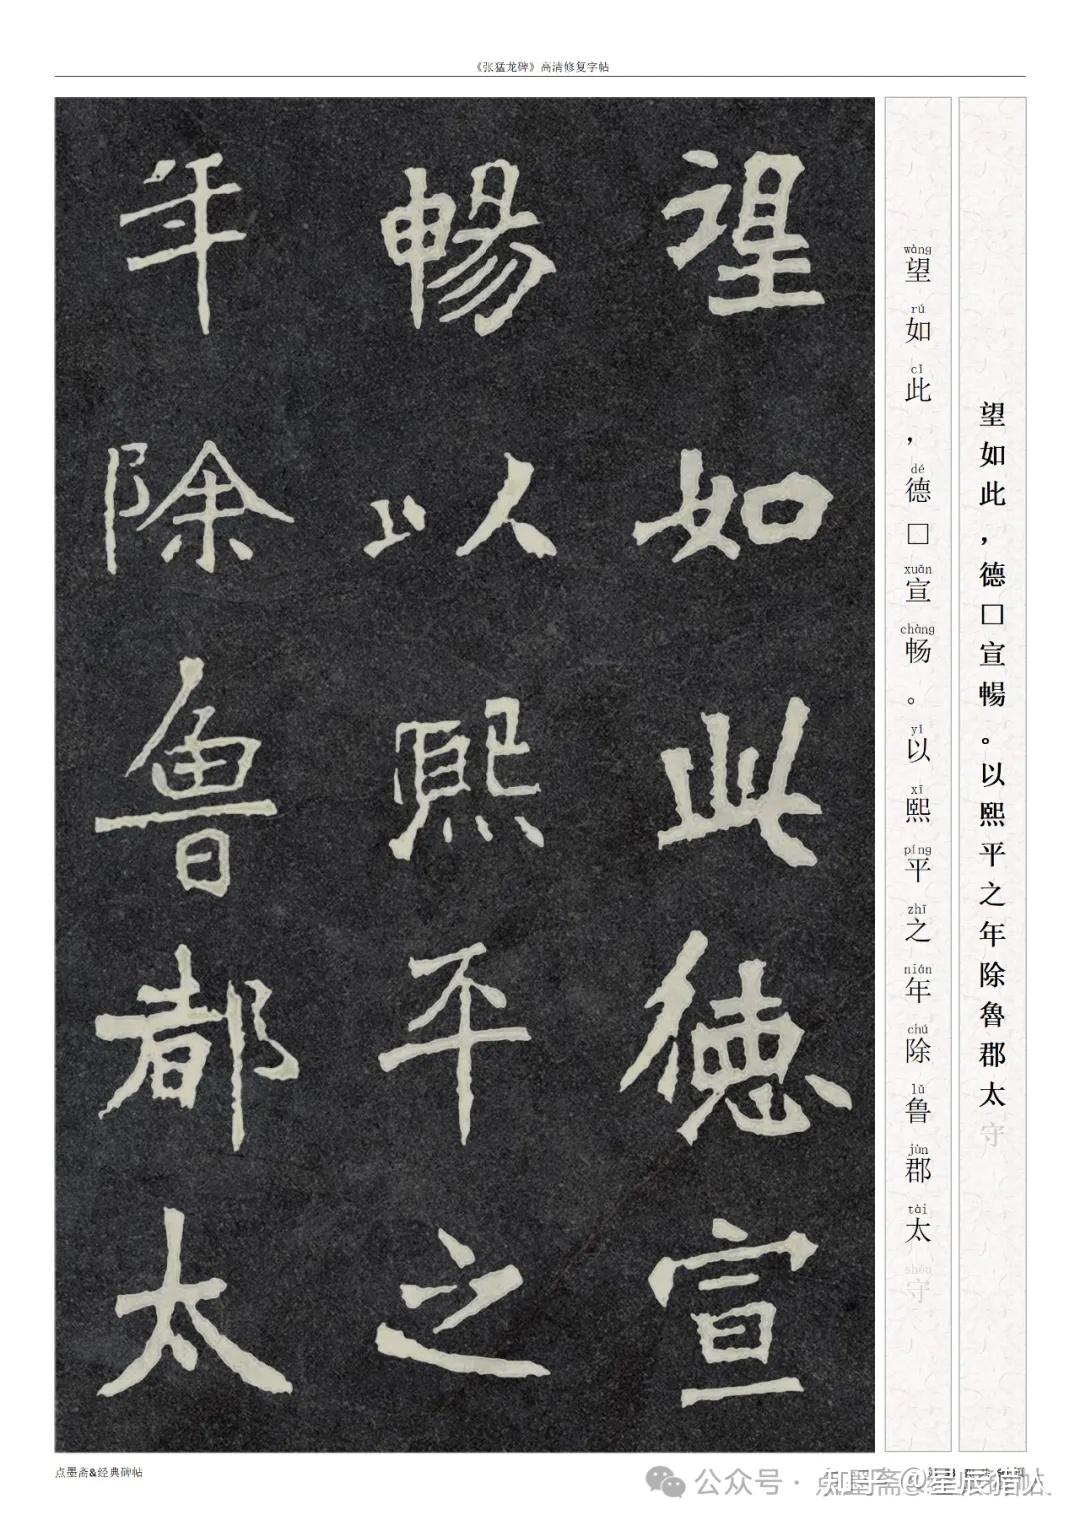 《张猛龙碑》高清修复字帖
望如此德宣
暢以熙平之
年除魯郡太
wàng rú cǐ dé xuān chàng yǐ xī píng zhī nián chú lǔ jùn tài shǒu
望如此，德□宣畅。以熙平之年除鲁郡太守
望如此，德□宣暢。以熙平之年除魯郡太守
点墨斋&经典碑帖
公众号·点墨斋
知乎 @星辰猎人